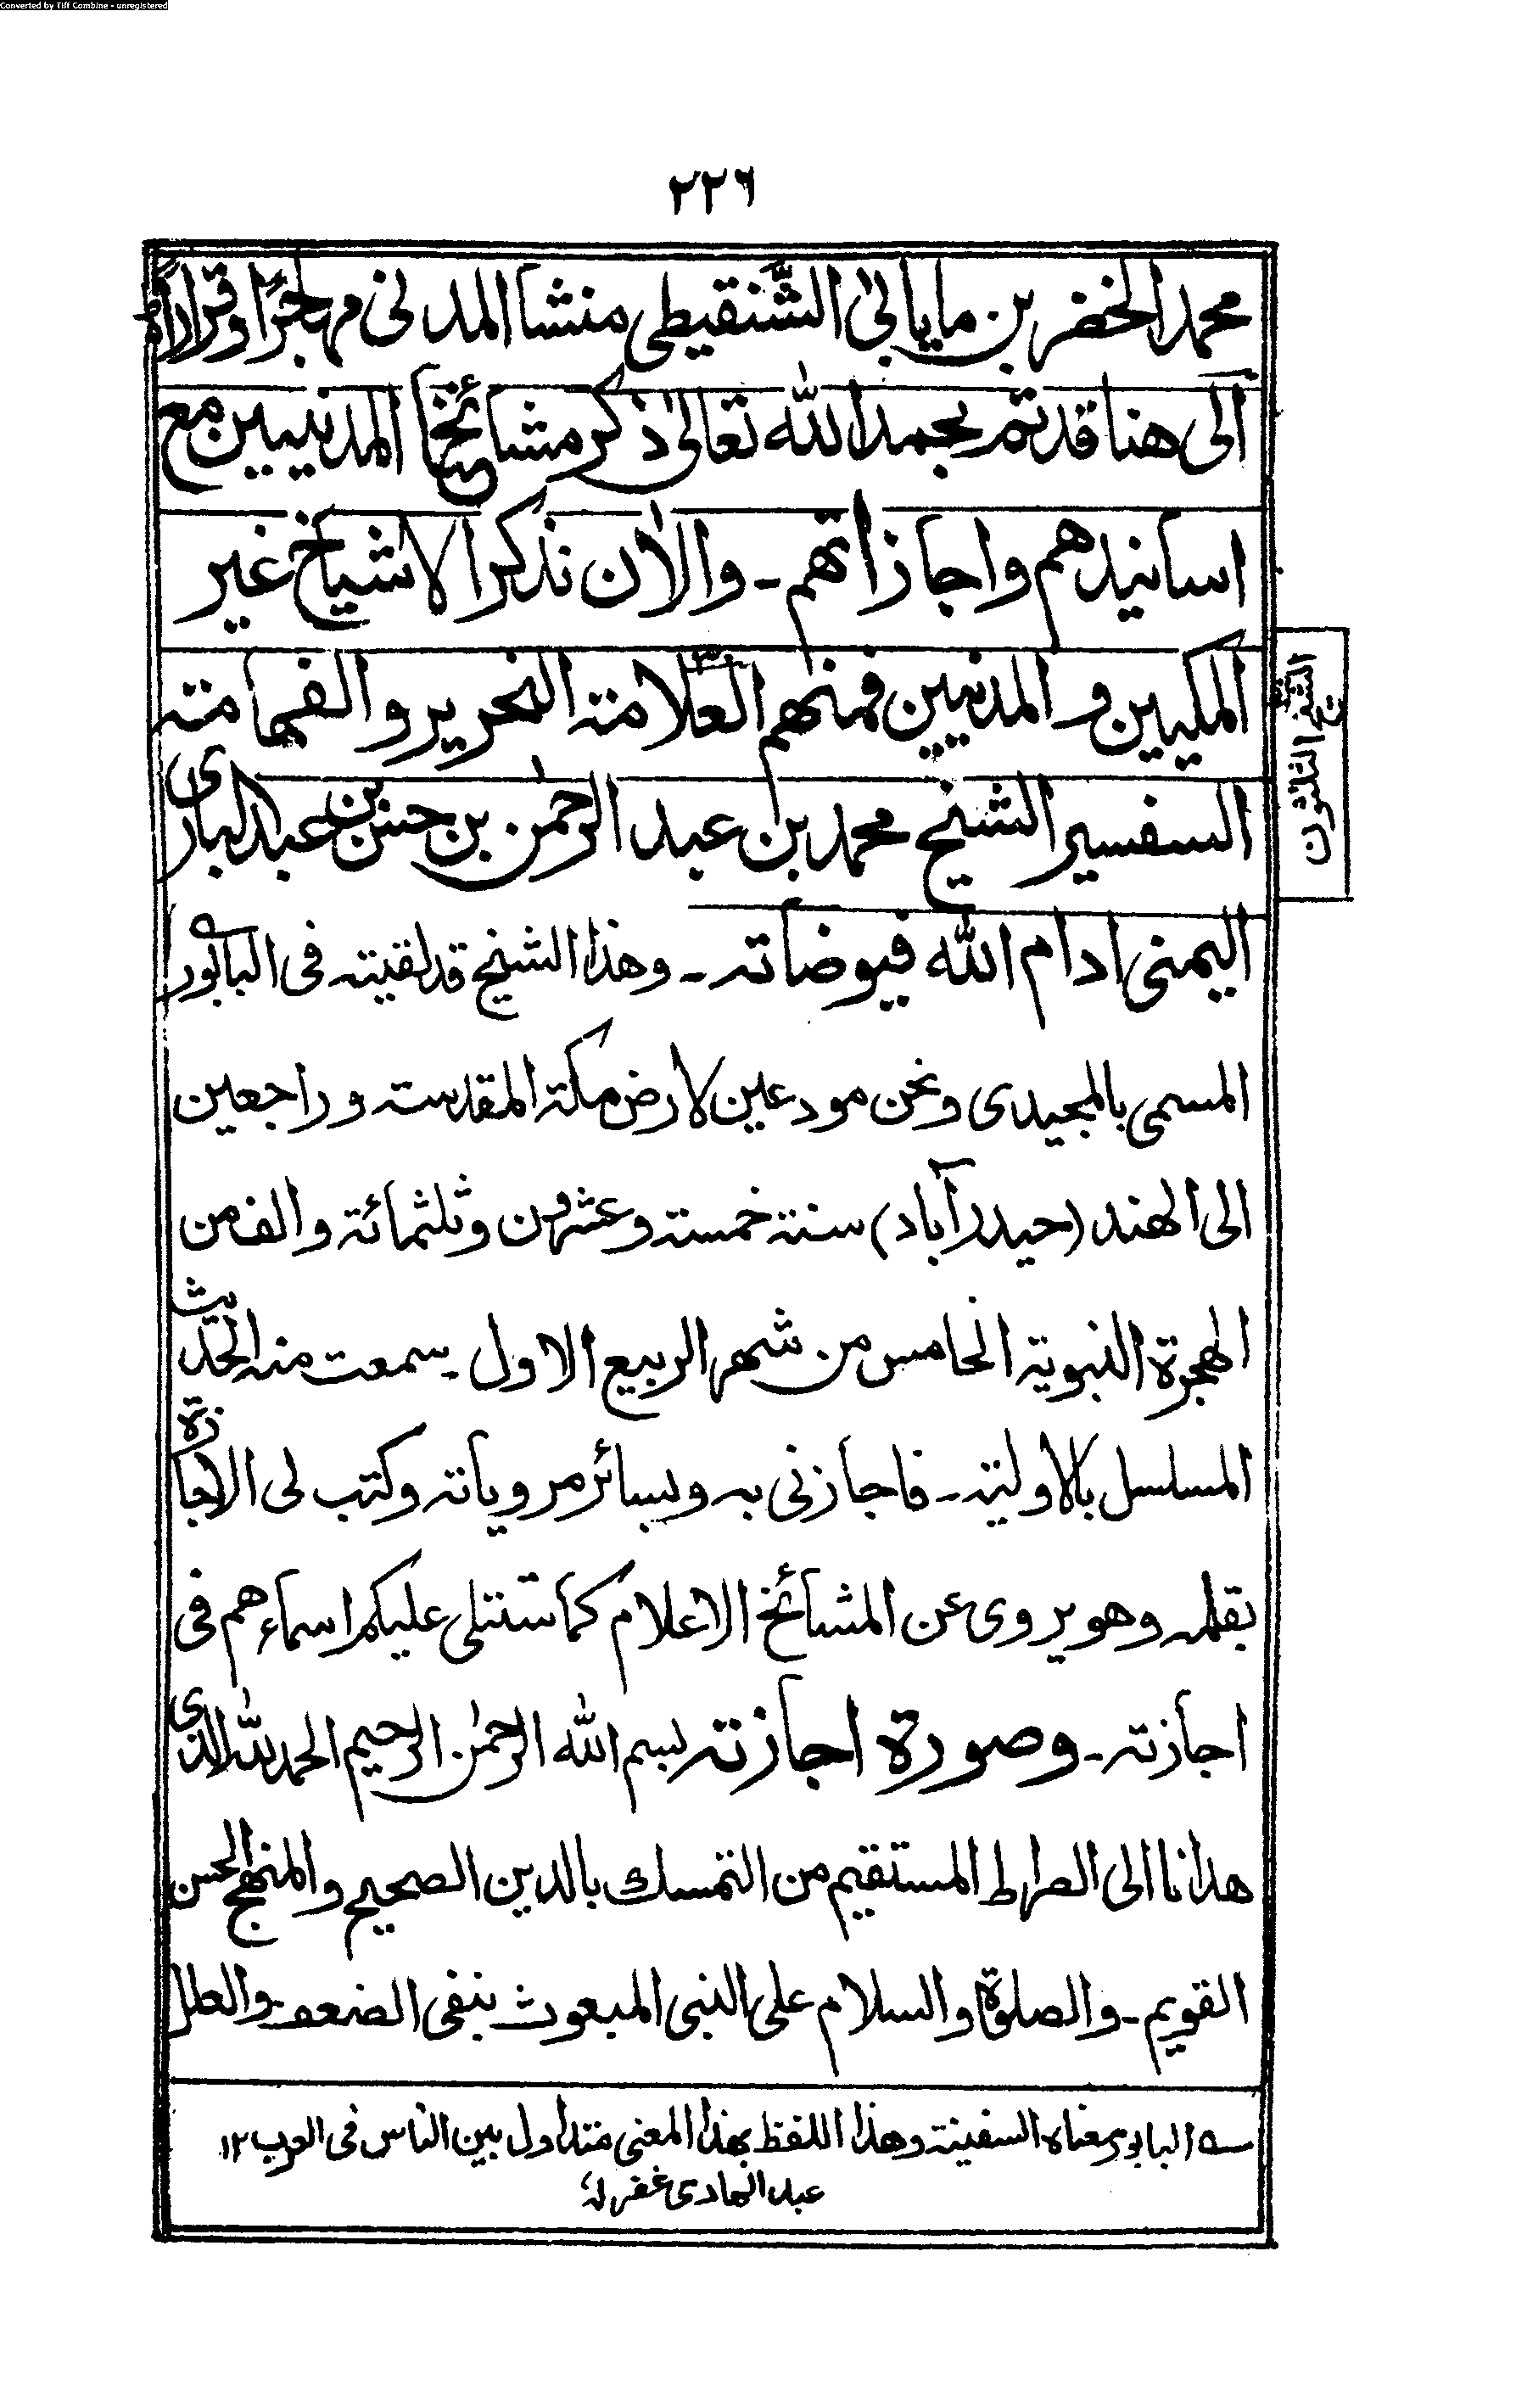 Converted by Tiff Combine - unregistered
٢٢٦
محمد الخضر بن مايابى الشنقيطى منشا المدنى مهاجرًا وقرارًا
الى هنا قد تم بحمد الله تعالىٰ ذكر مشائخنا المدنيين مع
اسانيدهم واجازاتهم ـ والاٰن نذكر الاشياخ غير
المكيين و المدنيين فمنهم العلامة النحرير والفهامة
السفسير الشيخ محمد بن عبد الرحمٰن بن حسن بن عبد البارى
اليمنى ادام الله فيوضاته ـ وهذا الشيخ قد لقيته فى البابور
المسمى بالمجيدى ونحن مودعين لارض مكة المقدسة و راجعين
الى الهند (حيدرآباد) سنة خمسة وعشرين وثلثمائة والف من
الهجرة النبوية الخامس من شهر الربيع الاول ـ سمعت منه الحديث
المسلسل بالاولية ـ فاجازنى به وبسائر مروياته وكتب لى الاجازة
بقلمه وهو يروى عن المشائخ الاعلام كما ستتلى عليكم اسماءهم فى
اجازته ـ وصورة اجازته بسم الله الرحمٰن الرحيم الحمد لله الذى
هدانا الى الصراط المستقيم من التمسك بالدين الصحيح والمنهج الحسن
القويم ـ والصلوٰة والسلام على النبى المبعوث بنفى الضعف ـ والعلل
الشيخ الثلثون
سه البابور معناه السفينة وهذا اللفظ بهذا المعنى متداول بين الناس فى العرب ١٢
عبد الهادى غفر له